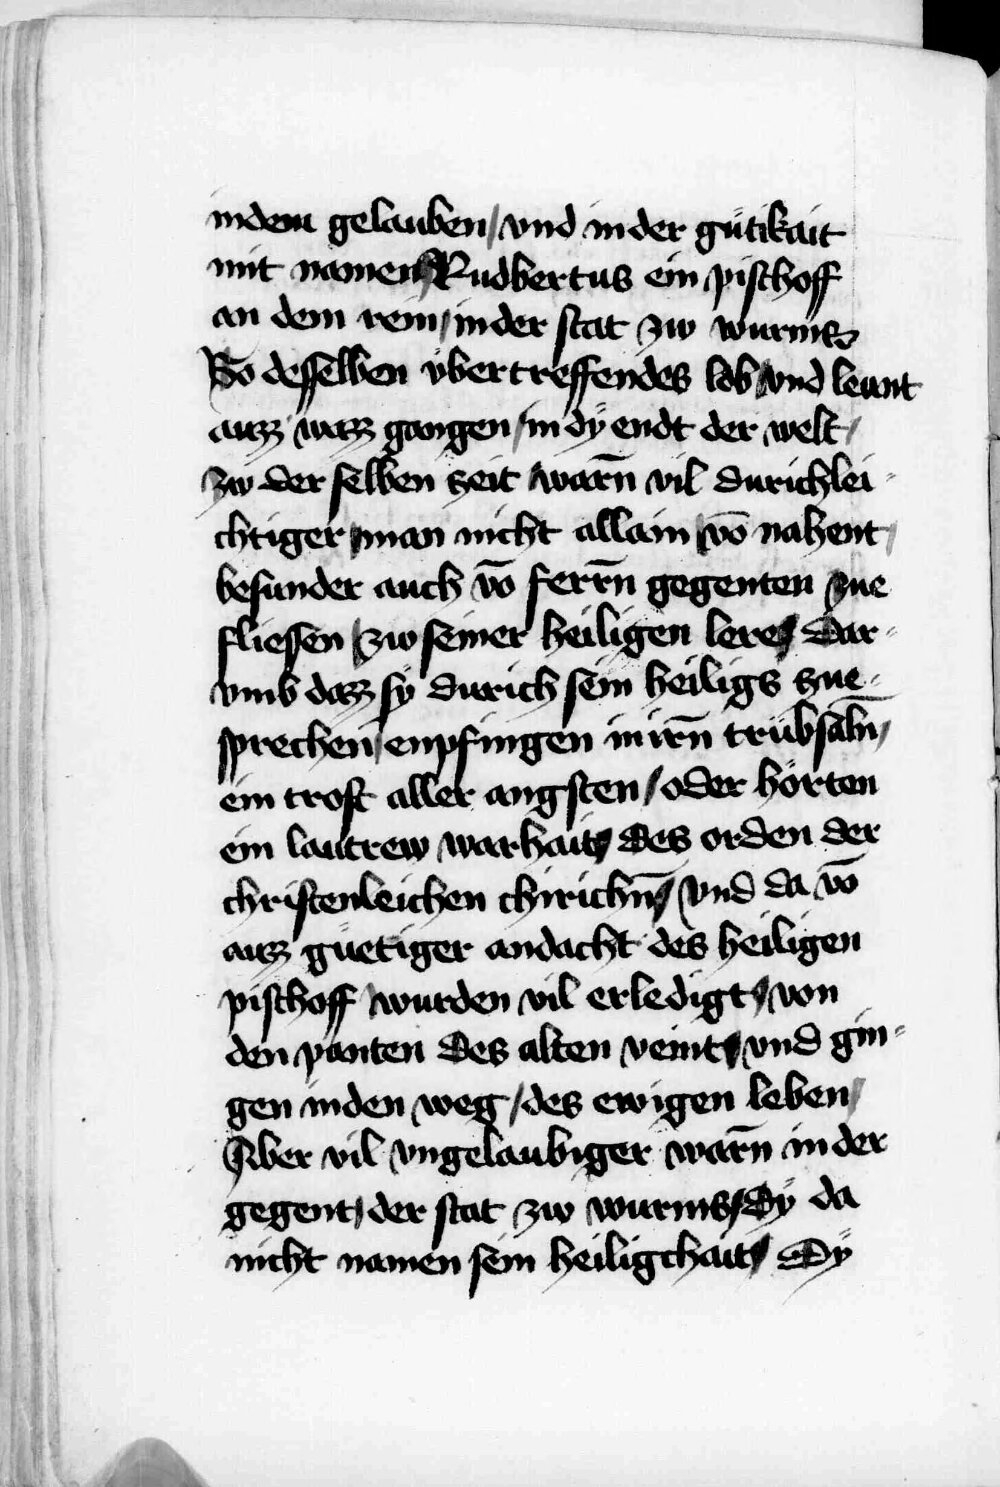 indem gelauben / vnd in der gütikait
mit namen Rudbertus ein pischoff
an dem rein / in der stat zw wurms
So desselben übertreffendes lob vnd leunt
auzz wazz gangen / in dÿ endt der welt /
zw der selben zeit warn̄ vil durichlei-
chtiger man nicht allain vō nahent /
besunder auch vō ferrn̄ gegenten zue
fliessen / zw seiner heiligen lere / Dar-
vmb dazz sÿ durich sein heiligs zue-
sprechen / enpfingen in irn̄ trübsaln̄ /
ein trost aller angsten / oder hörten
ein lautrew warhait / des orden der
christenleichen chirichn̄ / vnd da vō
auzz güetiger andacht des heiligen
pischoff wurden vil erledigt / von
den panten des alten veint / vnd gin-
gen in den weg / des ewigen leben /
Aber vil vngelaubiger warn̄ in der
gegent / der stat zw wurms / Dÿ da
nicht namen sein heiligchait / Dÿ